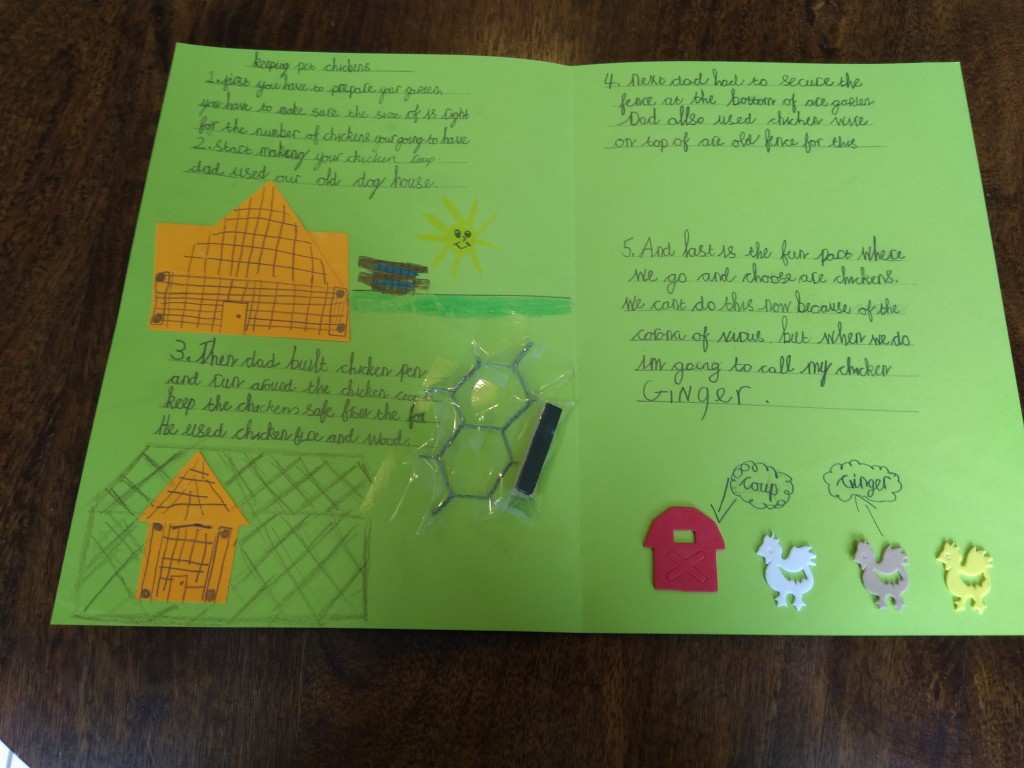 keeping pet chickens
1. first you have to prepare your garden
you have to make sure the size of is right
for the number of chickens your going to have
2. Start making your chicken Coup
dad used our old dog house.
3. Then dad built chicken pen
and run around the chicken coup
keep the chickens safe from the fox
He used chicken fire and wood.
4. Next dad had to secure the
fence at the bottom of are garden
Dad allso used chicken wire
on top of are old fence for this
5. And last is the fun part where
we go and choose are chickens.
We cant do this now because of the
corona of virus but when we do
im going to call my chicken
GiNger.
Coup
Ginger